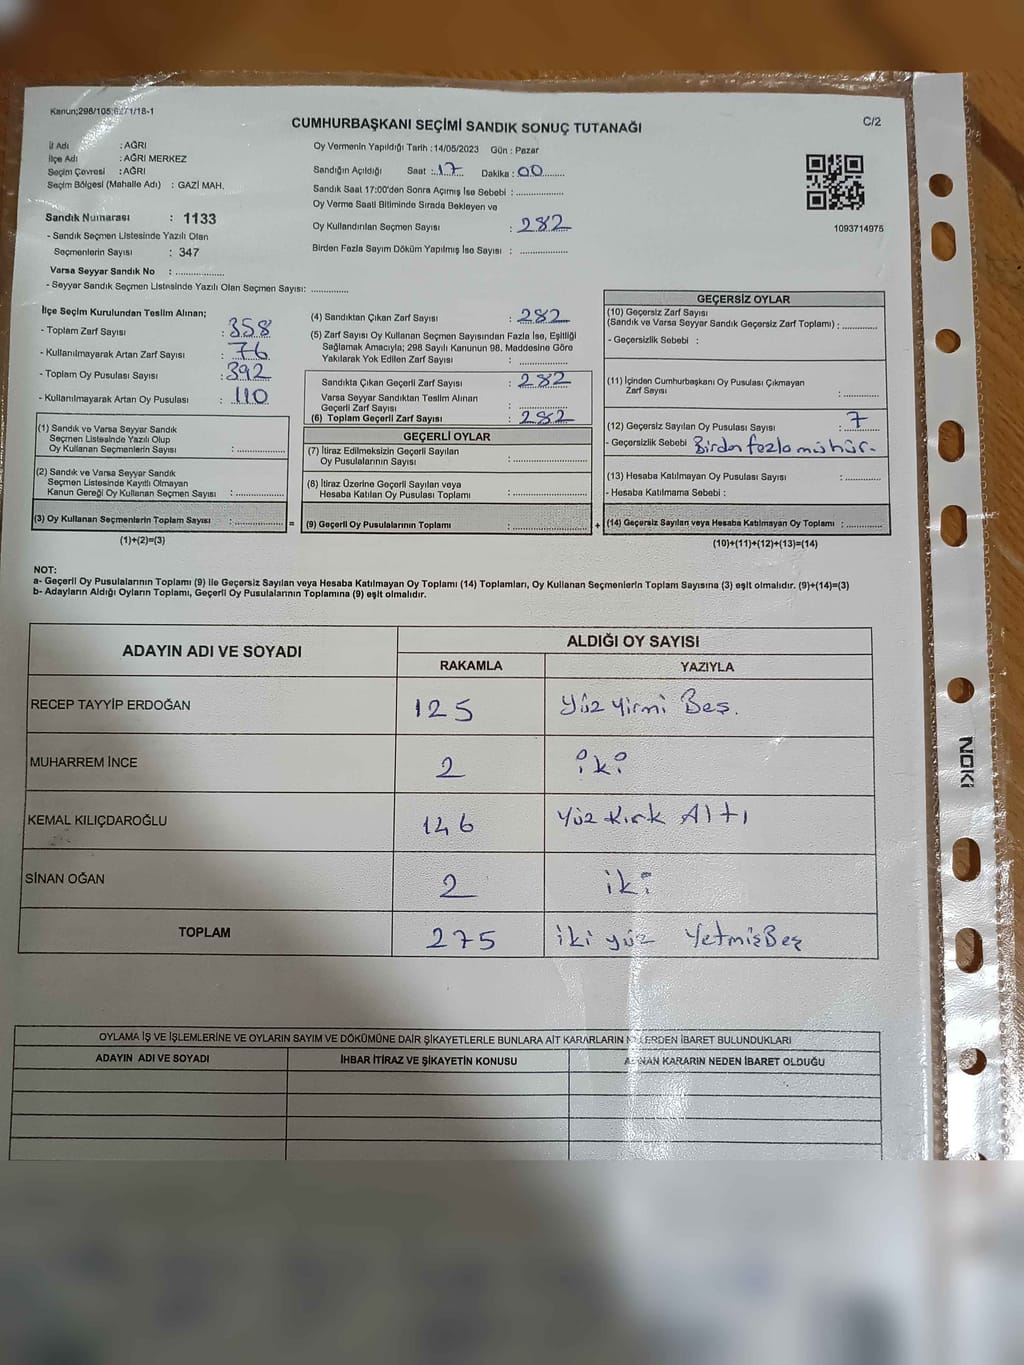 Kanun;298/105;6271/18-1
C/2
CUMHURBAŞKANI SEÇİMİ SANDIK SONUÇ TUTANAĞI
İl Adı : AĞRI
İlçe Adı : AĞRI MERKEZ
Seçim Çevresi : AĞRI
Seçim Bölgesi (Mahalle Adı) : GAZİ MAH.
Sandık Numarası : 1133
- Sandık Seçmen Listesinde Yazılı Olan
Seçmenlerin Sayısı : 347
Varsa Seyyar Sandık No : ..............
- Seyyar Sandık Seçmen Listesinde Yazılı Olan Seçmen Sayısı: ............
Oy Vermenin Yapıldığı Tarih : 14/05/2023 Gün : Pazar
Sandığın Açıldığı Saat : 17 Dakika : 00
Sandık Saat 17:00'den Sonra Açımış İse Sebebi : ...............
Oy Verme Saati Bitiminde Sırada Bekleyen ve
Oy Kullandırılan Seçmen Sayısı : 282
Birden Fazla Sayım Döküm Yapılmış İse Sayısı : ...............
1093714975
İlçe Seçim Kurulundan Teslim Alınan;
- Toplam Zarf Sayısı : 358
- Kullanılmayarak Artan Zarf Sayısı : 76
- Toplam Oy Pusulası Sayısı : 392
- Kullanılmayarak Artan Oy Pusulası : 110
(1) Sandık ve Varsa Seyyar Sandık
Seçmen Listesinde Yazılı Olup
Oy Kullanan Seçmenlerin Sayısı : ...............
(2) Sandık ve Varsa Seyyar Sandık
Seçmen Listesinde Kayıtlı Olmayan
Kanun Gereği Oy Kullanan Seçmen Sayısı : ...............
(3) Oy Kullanan Seçmenlerin Toplam Sayısı : ............... =
(1)+(2)=(3)
(4) Sandıktan Çıkan Zarf Sayısı : 282
(5) Zarf Sayısı Oy Kullanan Seçmen Sayısından Fazla İse, Eşitliği
Sağlamak Amacıyla; 298 Sayılı Kanunun 98. Maddesine Göre
Yakılarak Yok Edilen Zarf Sayısı : ...............
Sandıkta Çıkan Geçerli Zarf Sayısı : 282
Varsa Seyyar Sandıktan Teslim Alınan
Geçerli Zarf Sayısı : ...............
(6) Toplam Geçerli Zarf Sayısı : 282
GEÇERLİ OYLAR
(7) İtiraz Edilmeksizin Geçerli Sayılan
Oy Pusulalarının Sayısı : ...............
(8) İtiraz Üzerine Geçerli Sayılan veya
Hesaba Katılan Oy Pusulası Toplamı : ...............
(9) Geçerli Oy Pusulalarının Toplamı : ............... +
GEÇERSİZ OYLAR
(10) Geçersiz Zarf Sayısı
(Sandık ve Varsa Seyyar Sandık Geçersiz Zarf Toplamı) : ............
- Geçersizlik Sebebi :
(11) İçinden Cumhurbaşkanı Oy Pusulası Çıkmayan
Zarf Sayısı : ............
(12) Geçersiz Sayılan Oy Pusulası Sayısı : 7
- Geçersizlik Sebebi Birden fazla mühür.
(13) Hesaba Katılmayan Oy Pusulası Sayısı : ............
- Hesaba Katılmama Sebebi :
(14) Geçersiz Sayılan veya Hesaba Katılmayan Oy Toplamı : ............
(10)+(11)+(12)+(13)=(14)
NOT:
a- Geçerli Oy Pusulalarının Toplamı (9) ile Geçersiz Sayılan veya Hesaba Katılmayan Oy Toplamı (14) Toplamları, Oy Kullanan Seçmenlerin Toplam Sayısına (3) eşit olmalıdır. (9)+(14)=(3)
b- Adayların Aldığı Oyların Toplamı, Geçerli Oy Pusulalarının Toplamına (9) eşit olmalıdır.
ADAYIN ADI VE SOYADI ALDIĞI OY SAYISI
RAKAMLA YAZIYLA
RECEP TAYYİP ERDOĞAN 125 Yüz Yirmi Beş.
MUHARREM İNCE 2 iki
KEMAL KILIÇDAROĞLU 146 Yüz Kırk Altı
SİNAN OĞAN 2 iki
TOPLAM 275 iki yüz YetmişBeş
OYLAMA İŞ VE İŞLEMLERİNE VE OYLARIN SAYIM VE DÖKÜMÜNE DAİR ŞİKAYETLERLE BUNLARA AİT KARARLARIN İBARET BULUNDUKLARI
ADAYIN ADI VE SOYADI İHBAR İTİRAZ VE ŞİKAYETİN KONUSU KARARIN NEDEN İBARET OLDUĞU
NOKI